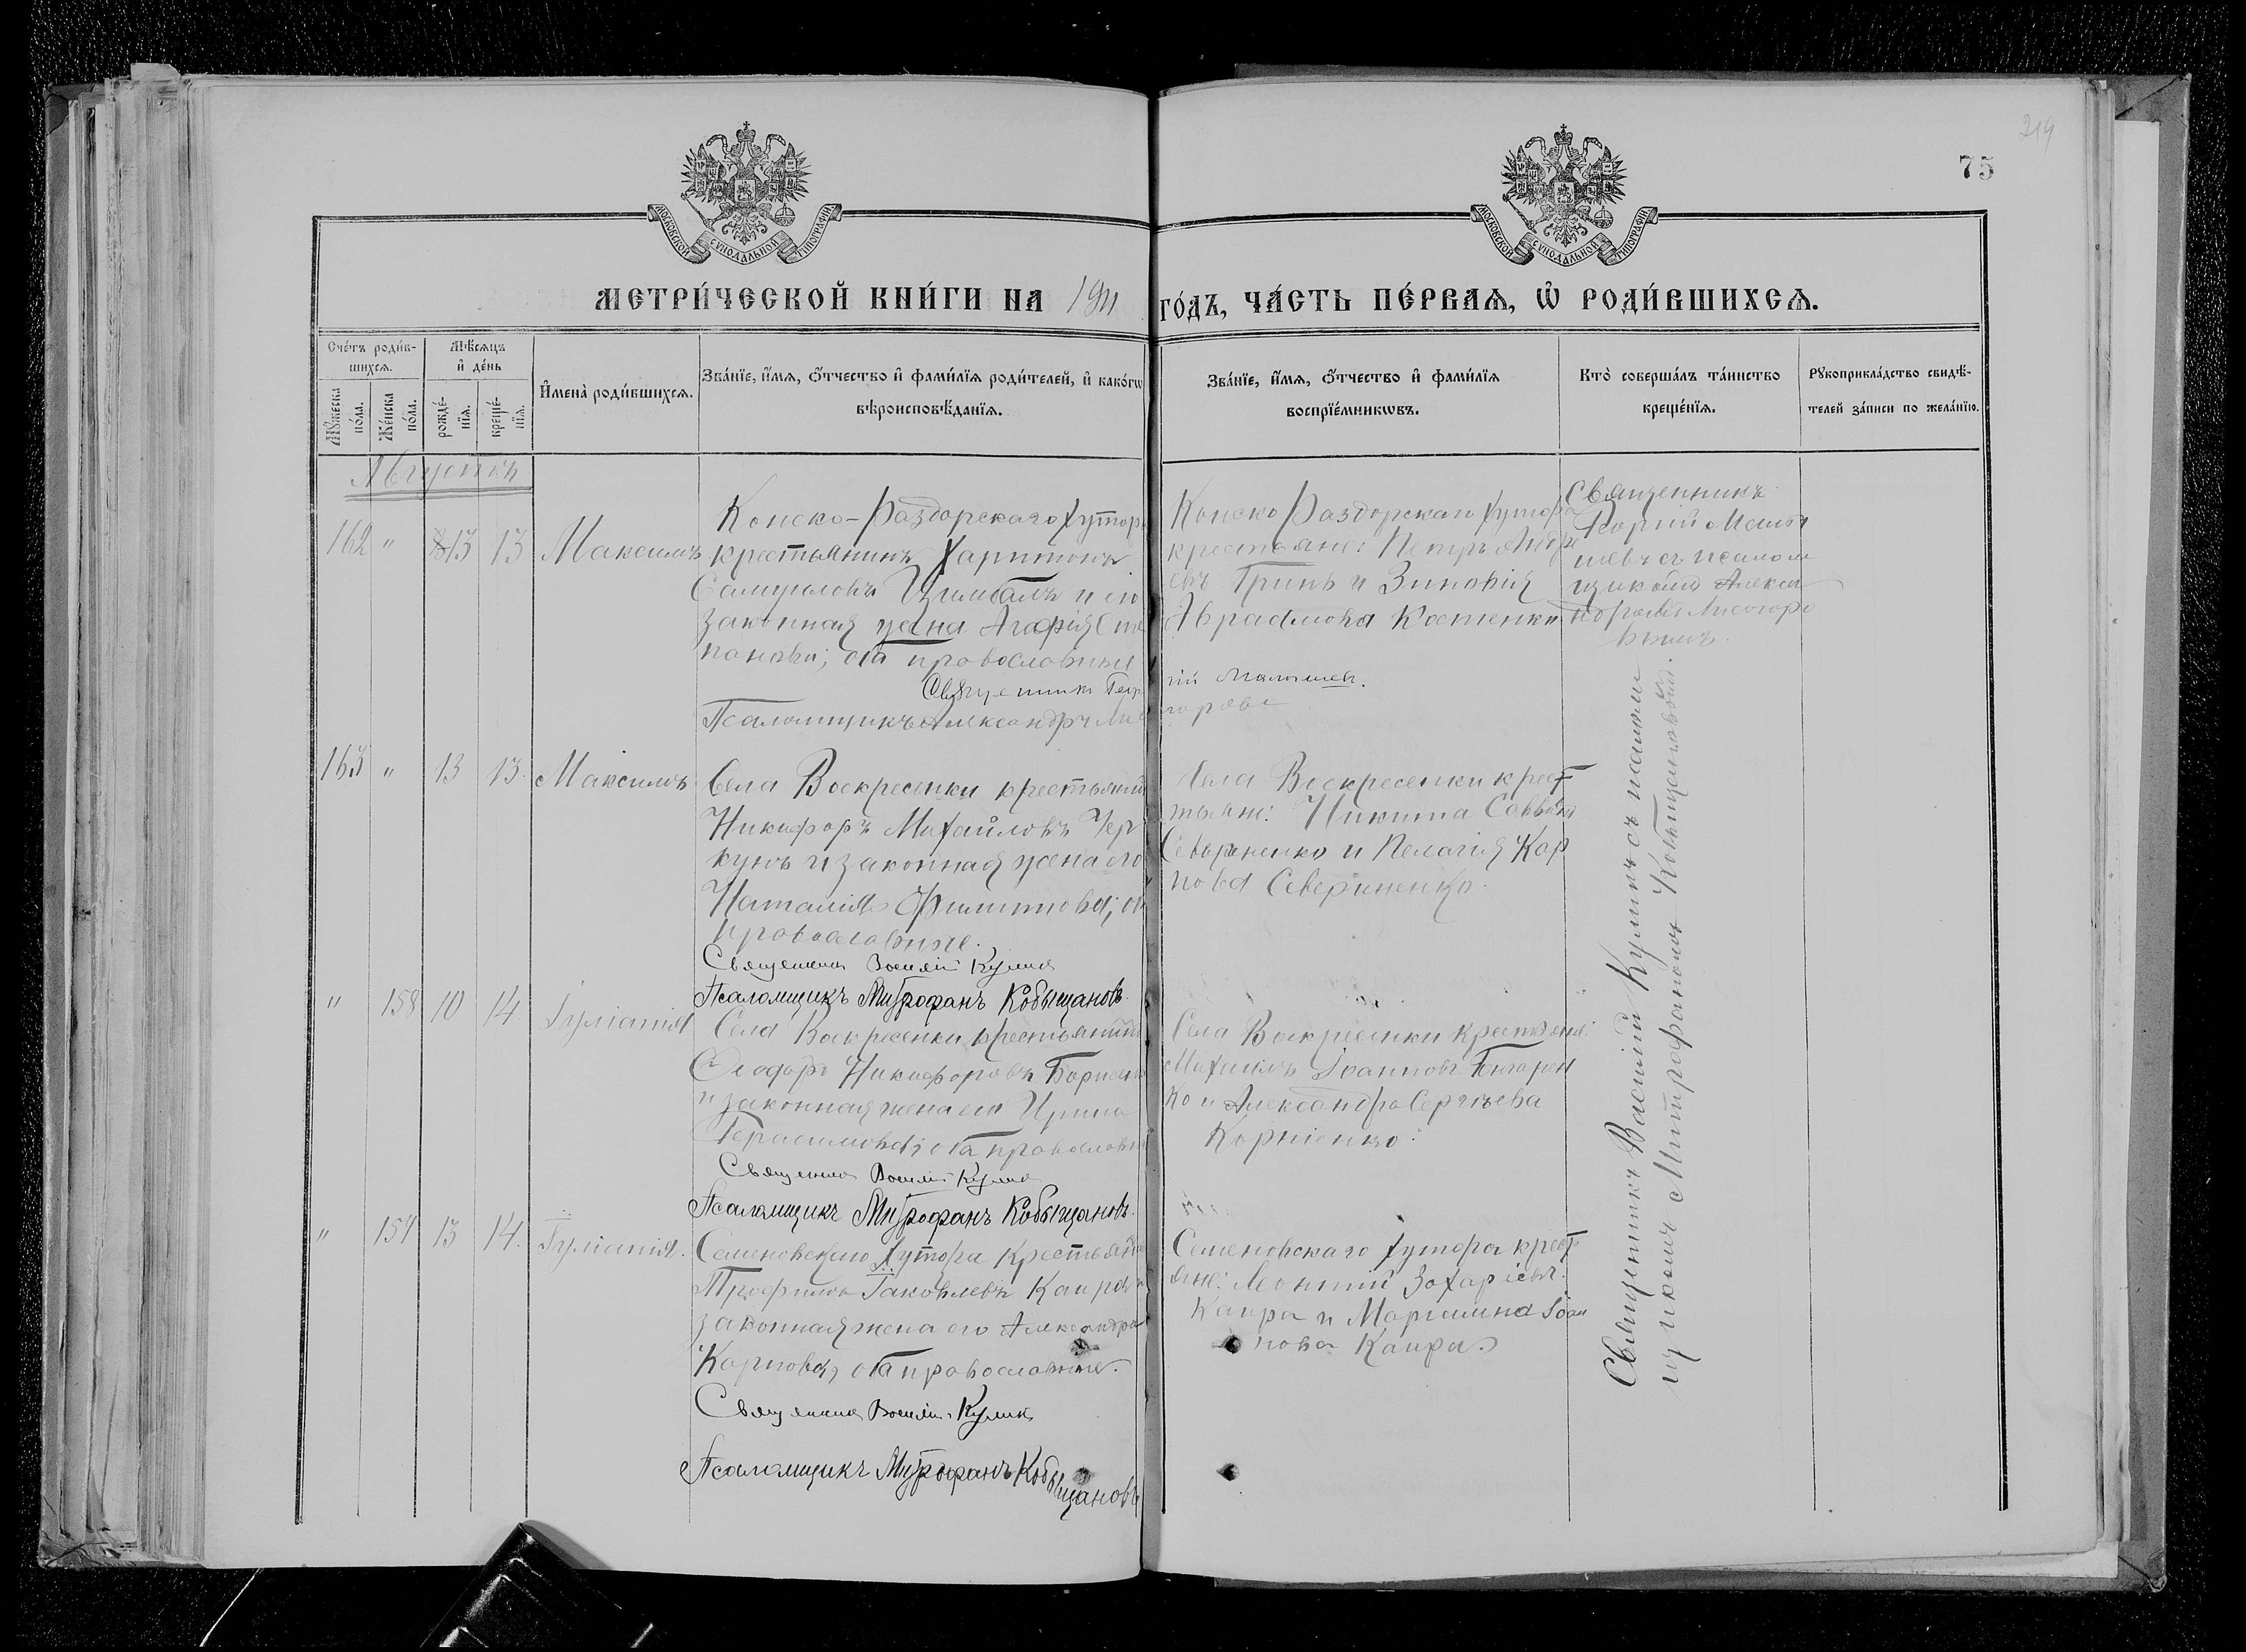 219
75
МОСКОВСКОЙ СѴНОДАЛЬНОЙ ТИПОГРАФІИ
МОСКОВСКОЙ СѴНОДАЛЬНОЙ ТИПОГРАФІИ
МЕТРИ́ЧЕСКОЙ КНИ́ГИ НА 1911 ГО́ДЪ, ЧА́СТЬ ПЕ́РВАѦ, Ѡ҆ РОДИ́ВШИХСѦ.
Сче́тъ роди́в-
шихсѧ.
Мꙋ́жеска по́ла.
Же́нска по́ла.
Мѣ́сѧцъ
и҆ де́нь
рожде́-
нїѧ.
креще́-
нїѧ.
И҆мена̀ роди́вшихсѧ.
Зва́нїе, и҆́мѧ, ѻ҆́тчество и҆ фами́лїѧ роди́телей, и҆ како́гѡ
вѣроисповѣ́данїѧ.
Зва́нїе, и҆́мѧ, ѻ҆́тчество и҆ фами́лїѧ
воспрїе́мникѡвъ.
Кто̀ соверша́лъ та́инство
креще́нїѧ.
Рꙋкоприкла́дство свидѣ́-
телей за́писи по жела́нїю.
Августъ
162 " 13 13 Максимъ
Конско-Раздорскаго хутора
крестьянинъ Харитонъ
Самуиловъ Цымбалъ и его
законная жена Агафія Сте
панова; оба православные
Священникъ Геор
гій Малышев.
Псаломщикъ Александръ
Конско Раздорскаго хутора
крестьяне: Петръ Андре
евъ Гринь и Зиновія
Авраамова Костенко
Священникъ
съ псалом
щикомъ Алекса
ндромъ
163 " 13 13 Максимъ
Села Воскресенки крестьянин
Никифоръ Михайловъ Чер
кунъ и законная жена его
Наталія Филиппова; об
православные.
Священник Василій Кулик
Псаломщикъ Митрофанъ Кобыщановъ.
Села Воскресенки крест
тьяне: Никита Саввинъ
Севериненко и Пелагія Кар
пова Севериненко.
" 158 10 14 Іуліанія
Села Воскресенки крестьянин
Ѳеодоръ Никифоровъ
и законная жена его Ирина
Герасимова; оба православн
Священник Василій Кулик
Псаломщикъ Митрофанъ Кобыщановъ.
Села Воскресенки крестьяне:
Михаилъ Іоанновъ Гончарен
ко и Александра Сергѣева
Корніенко.
" 154 13 14. Іуліанія.
Семеновскаго хутора крестьянин
Трофимъ Іаковлевъ Каира и
законная жена его Александра
Карпова, оба православные.
Священник Василій Кулик
Псаломщикъ Митрофанъ Кобыщановъ
Семеновскаго хутора крест
яне: Леонтій Захаріевъ
Каира и Маріамна Іоан
нова Каира.
Священникъ Василій Куликъ съ псалом
щикомъ Митрофаномъ Кобыщановымъ.